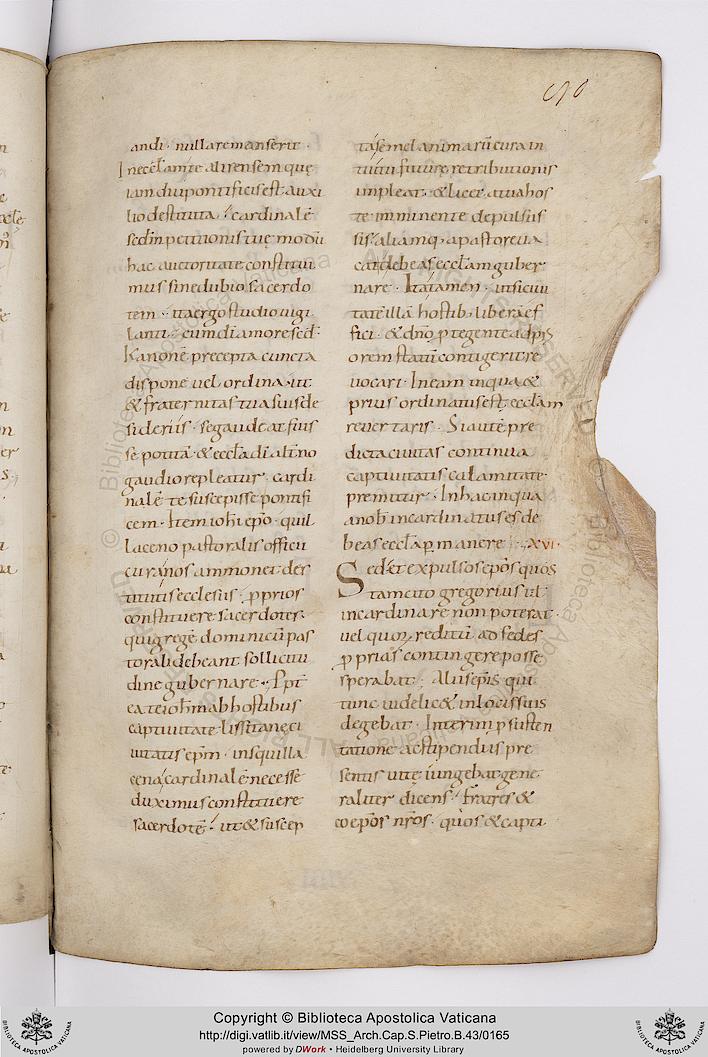 andi · nullaremanserit ·
Inecclamte alirensem que
iam diu pontificis est auxi
lio destituta cardinalē
sedin petitionis tue modū
hac auctoritate constitui
mus sine dubio sacerdo
tem · ita ergo studio uigi
lanti · cum dī amore sed
Kanonē precepta cuncta
dispone uel ordina · ut
& fraternitas tua suis de
sideriis · se gaudeat fuis
se potitā · & ecclā dī alt̄no
gaudio repleatur · cardi
nalē te suscepisse pontifi
cem · Item iohī ep̄o · quil
laceno pastoralis officii
cura nos ammonet des
titutis ecclesiis · p̱prios
constituere sacerdotes ·
qui gregē dominicū pas
torali debeant sollicitu
dine gubernare · Ppt̄
ea te iohēm ab hostibus
captiuitate lissitane ci
uitatis ep̄m · in squilla
cena cardinalē necesse
duximus constituere
sacerdotē · ut & suscep
ta semel animarū cura in
tuitu future retributionis
impleas · & licet a tua hos
te imminente depulsus
sis · aliam q; a pastore ua
cat debeas ecclam guber
nare · Ita tamen · ut si ciui
tatē illā hostib; liberā ef
fici · & dn̄o p̱tegente ad p̱is
orem statū contigerit re
uocari · In eam in qua &
prius ordinatus est ecclam
reuertaris · Si autē pre
dicta ciuitas continua
captiuitatis calamitate
premitur · In hac in qua
a nob̄ incardinatus es de
beas eccla p̱manere · XVI ·
Sed & expulsos ep̄os quos
tam cito gregorius ul
incardinare non poterat ·
uel quor̄ reditū ad sedes
p̱prias contingere posse
sperabat · Aliis ep̄is qui
tunc uidelic& in locis suis
degebat · Interim p̱ susten
tatione ac stipendiis pre
sentis uite iungebat gene
raliter dicens · Fratres &
coep̄os nr̄os · quos & capti
Copyright © Biblioteca Apostolica Vaticana
http://digi.vatlib.it/view/MSS_Arch.Cap.S.Pietro.B.43/0165
powered by DWork • Heidelberg University Library